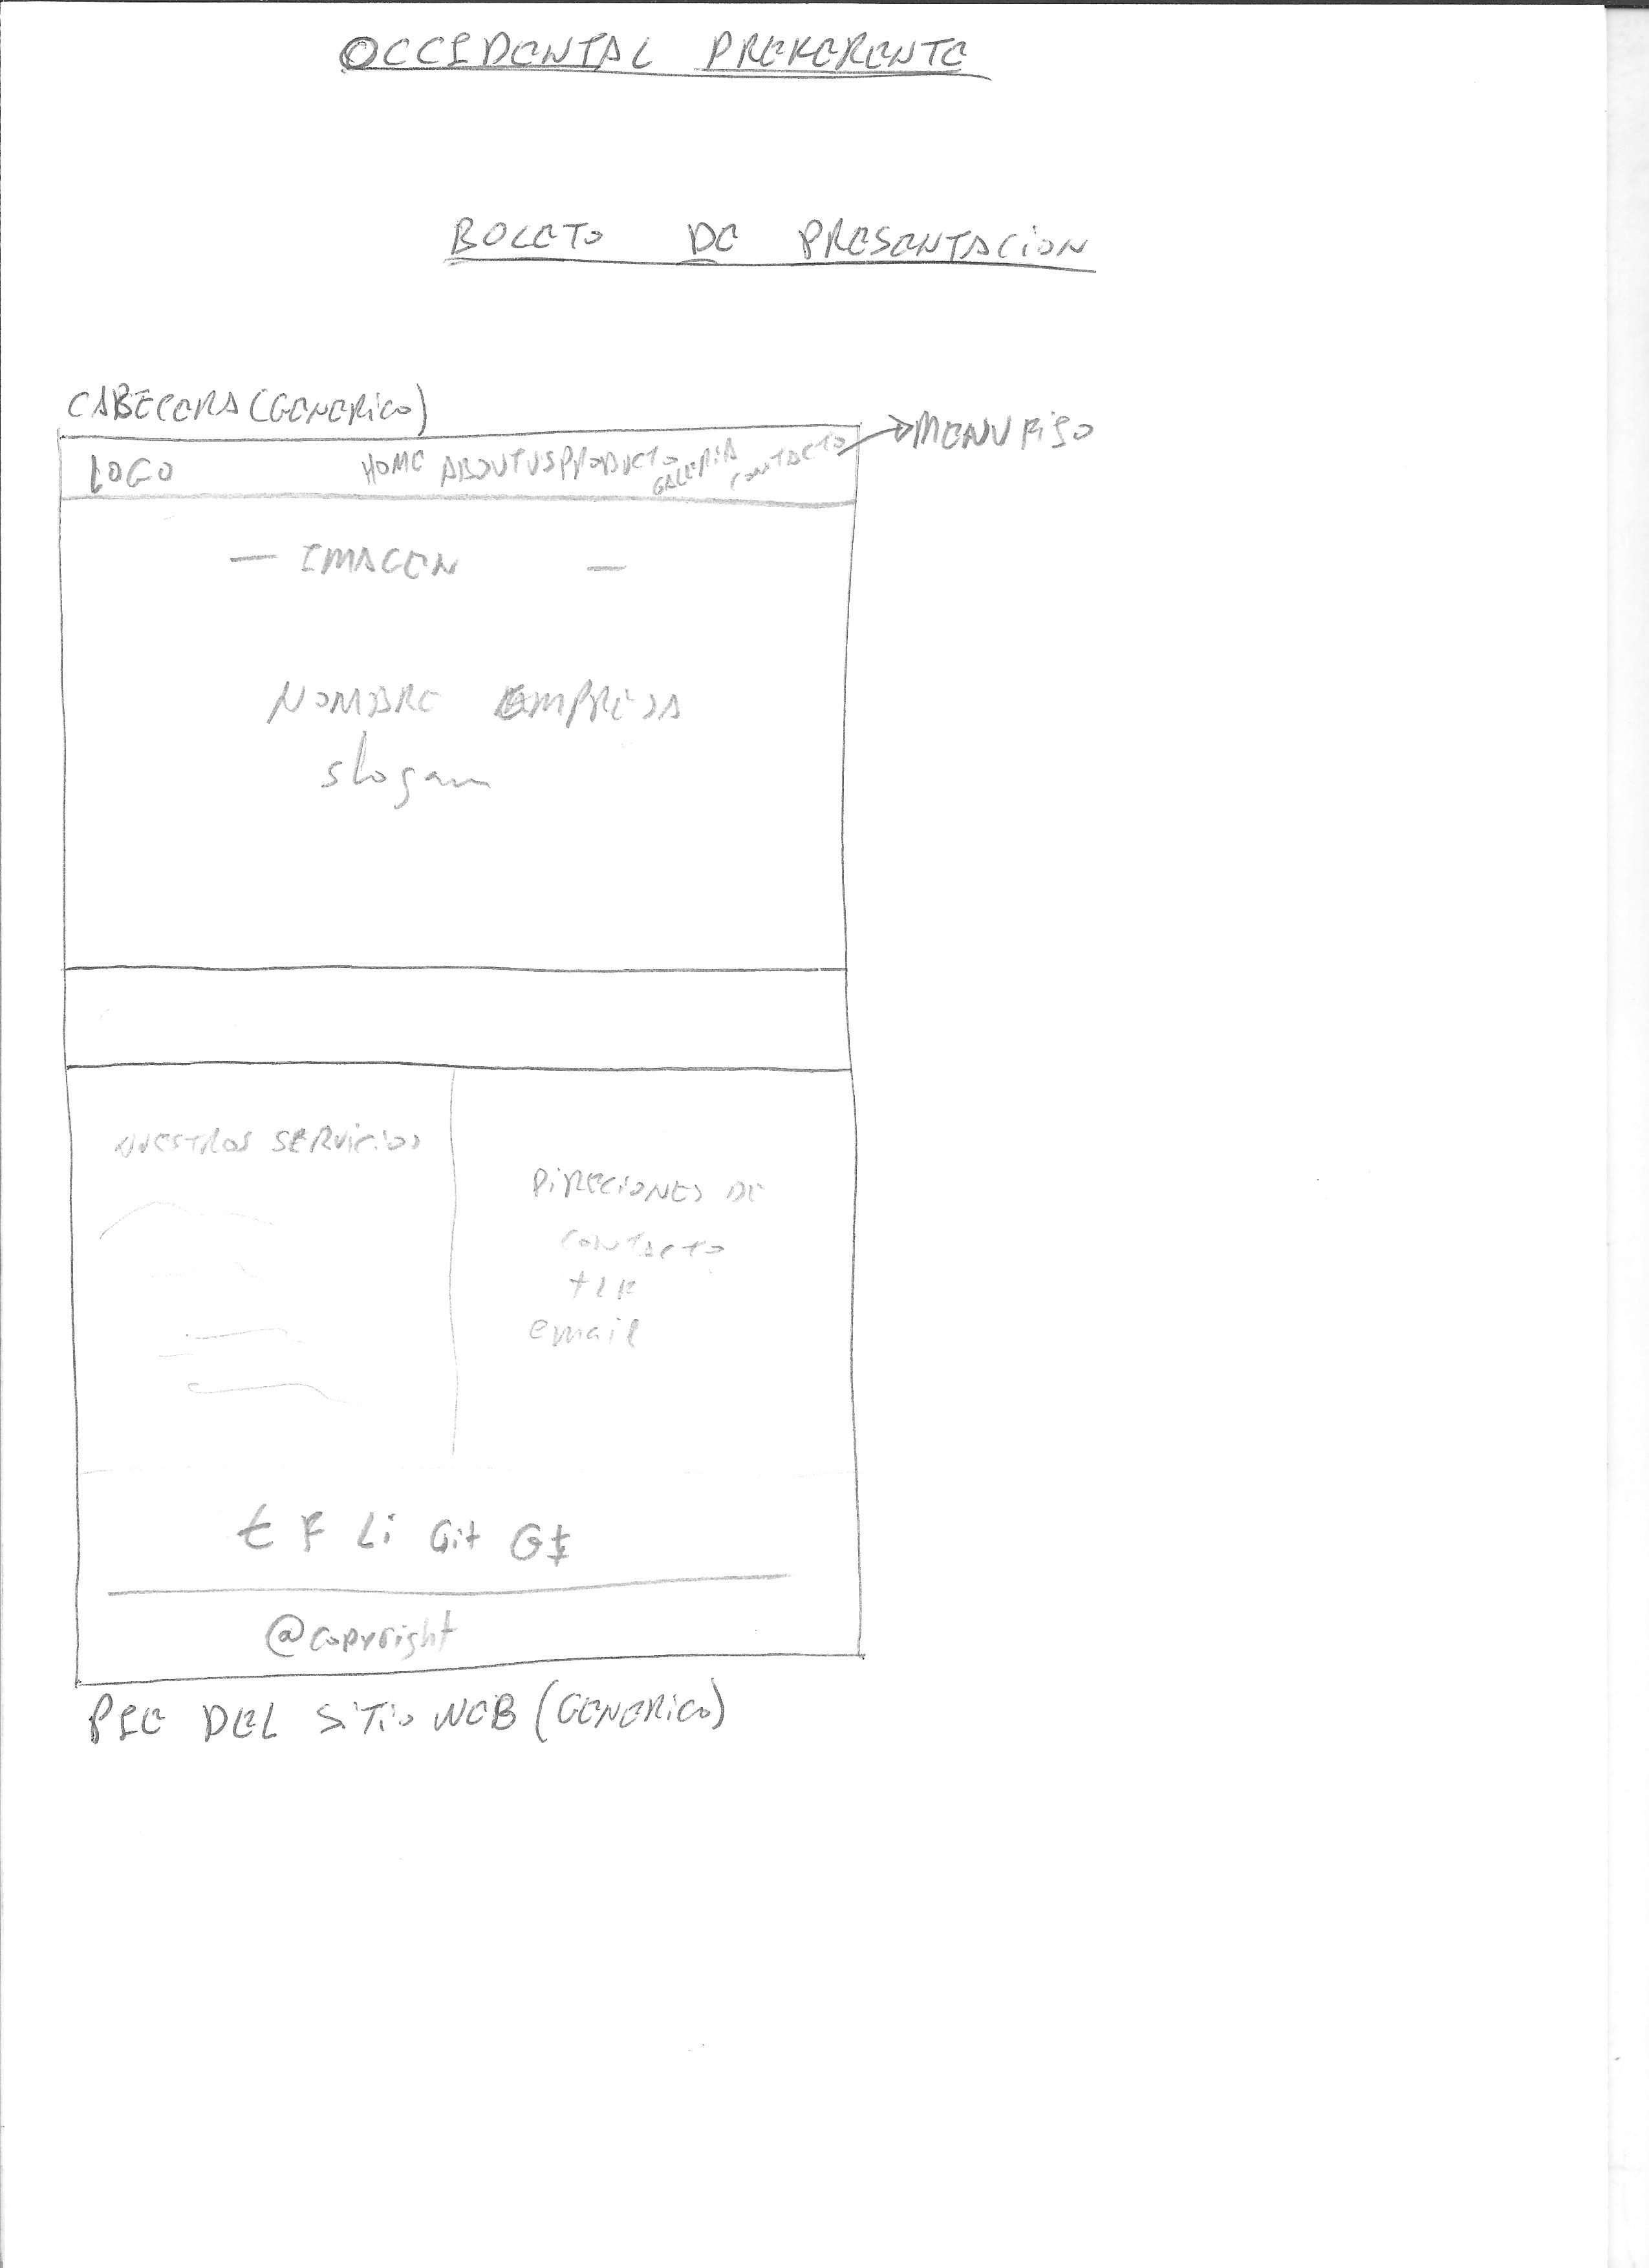 OCCIDENTAL PREFERENTE
BOCETO DE PRESENTACION
CABECERA (GENERICO)
LOGO HOME ABOUT US PRODUCTO GALERIA CONTACTO → MENU FISO
— IMAGEN —
NOMBRE EMPRESA
slogan
NUESTROS SERVICIOS
DIRECIONES DE
CONTACTO
tlf
email
t F Li Git G±
@copyright
PIE DEL SITIO WEB (GENERICO)